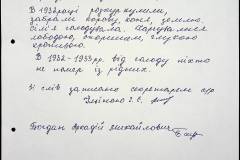 В 1932 році розкуркулили,
забрали корову, коня, землю.
Сім'я голодувала. Харчувалися
лободою, споришем, глухою
кропивою.
В 1932-1933 рр. від голоду ніхто
не помер із рідних.
Зі слів записано секретарем с/р
Богдан Аркадій Михайлович